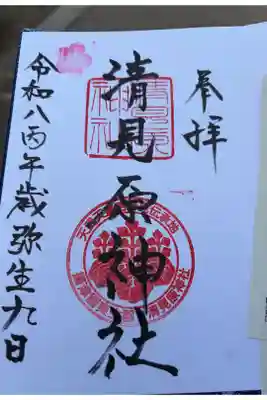 奉拝
清見原神社
令和八丙午歳弥生九日